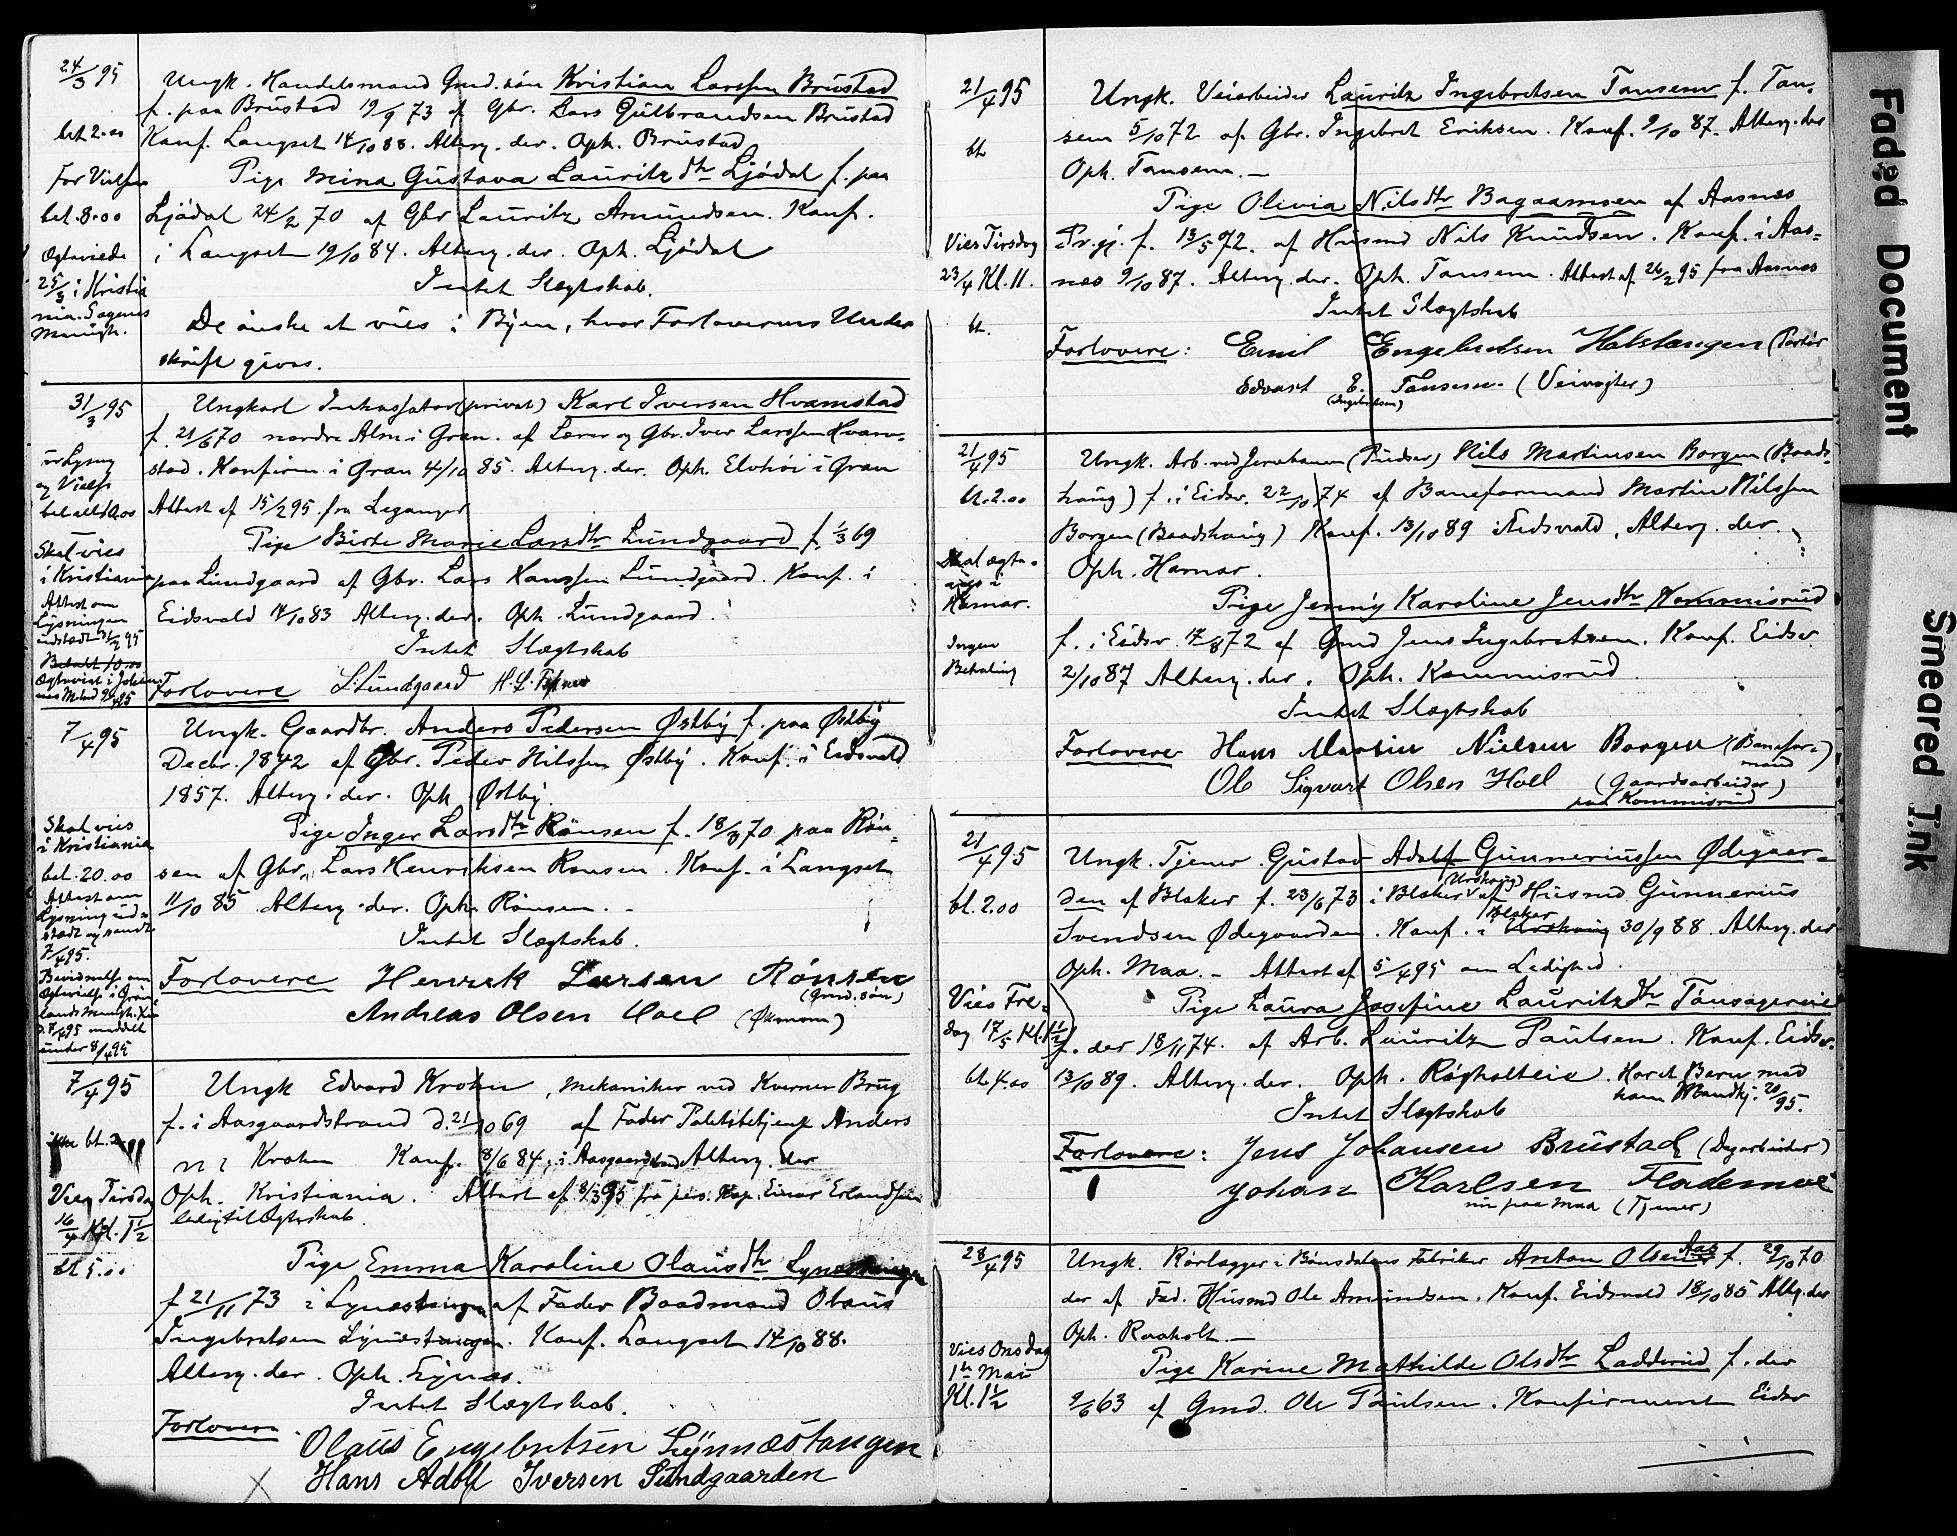 24/3 95
Ungk. Handelsmand Gmd. søn Kristian Larssen Brustad
f. paa Brustad 19/9 73 af Gbr. Lars Gulbrandsen Brustad
bet 2.00
Konf. Langset 14/10 88. Alterg. der. Oph. Brustad
For Vielsen
Pige Mina Gustava Lauritz dtr Ljødal f. paa
bet. 8.00
Ljødal 24/2 70 af Gbr Lauritz Amundsen. Konf.
Ægteviede
i Langset 19/10 84. Alterg. der. Oph. Ljødal
25/3 i Kristia
nia. Sagenes
Menigh.
Intet Slægtskab.
De ønske at vies i Byen, hvor Forlovernes Under
skrift gives.
31/3 95
Ungkarl Inkassator (privat) Karl Iversen Hvamstad
f. 21/6 70 nordre Alm i Gran. af Lærer og Gbr. Iver Larssen Hvam-
stad. Konfirm. i Gran 4/10 85. Alterg. der. Oph. i Gran
og Vielse
Attest af 15/2 95 fra
Pige Birte Marie Larsdtr Lundgaard f. 1/3 69
Skal vies
i Kristiania
paa Lundgaard af Gbr. Lars Hanssen Lundgaard. Konf. i
Attest om
Lysningen
Eidsvold 14/10 83 Alterg. der. Oph. Lundgaard.
Intet Slægtskab
Betalt 10.00
Forlovere L. Lundgaard
7/4 95
Ungk. Gaardbr. Anders Pedersen Østby f. paa Østby
Decbr. 1842 af Gbr. Peder Nilssen Østby. Konf. i Eidsvold
1857. Alterg. der. Oph. Østby.
Skal vies
i Kristiania
Pige Inger Larsdtr Rønsen f. 18/3 70 paa Røn-
bet. 20.00
sen af Gbr. Lars Henriksen Rønsen. Konf. i Langset
Attest om
Lysning ud-
stedt og sendt
7/4 95.
11/10 85 Alterg. der. Oph. Rønsen.
Intet Slægtskab.
Forlovere Henrik Larsen Rønsen
(Gmd. søn)
Andreas Olsen Hoel (Økonom)
under 8/4 95
7/4 95
Ungk Edvard Krohn, mekaniker ved Kværner Brug
f. i Aasgaardstrand d. 21/10 69 af Fader Politibetjent Anders
bt. 2
Krohn Konf. 8/6 84, i Aasgaardstrand Alterg. der
Vies Tirsdag
16/4 Kl. 1 1/2
Oph. Kristiania. Attest af 8/3 95 fra pers. Kap. Einar Erlandsen
ledig til Ægteskab.
bt 5.00
Pige Emma Karoline Olausdtr
f 21/11 73 i af Fader Baadmand Olaus
Ingebretsen Konf. Langset 14/10 88.
Alterg. der. Oph.
Intet Slægtskab.
Forlovere
Olaus Engebretsen Lynnæstangen
Hans Adolf Iversen Sundgaarden
21/4 95
Ungk. Veiarbeider Lauritz Ingebretsen Tansem f. Tan-
bt
sem 5/10 72 af Gbr. Ingebret Eriksen. Konf. 9/10 87. Alterg. der
Oph. Tansem. —
Pige Olivia Nilsdtr Bagaamoen af Aasnes
Vies Tirsdag
23/4 Kl. 11.
Pr.gj. f. 13/5 72. af Husmd Nils Knudsen. Konf. i Aas-
nes 9/10 87. Alterg. der. Oph. Tansem. Attest af 26/2 95 fra Aasnes
Intet Slægtskab
bt.
Forlovere: Emil Engebretsen Halstangen (Portør
Edvart E. Tansem. (Veivogter)
(Ingebretsen)
21/4 95
Ungk. Arb. ved Jernbanen (Pudser) Nils Martinsen Borgen (Baads-
bt. 2.00
haug) f. i Eidsv. 22/10 74 af Baneformand Martin Nilssen
Borgen (Baadshaug) Konf. 13/10 89 i Eidsvold, Alterg. der.
Skal ægte-
vies i
Hamar.
Oph. Hamar.
Pige Jenny Karoline Jensdtr Kommisrud
Ingen
Betaling
f. i Eidsv. 17/8 72 af Gmd Jens Ingebretsen. Konf. Eidsv.
2/10 87 Alterg. der. Oph. Kommisrud.
Intet Slægtskab
Forlovere Hans Martin Nielsen Borgen (Banefor-
mand)
Ole Sigvart Olsen Hoel (Gaardsarbeider)
paa Kommisrud
21/4 95
Ungk. Tjener Gustav Adolf Gunneriussen Ødegaar-
bt. 2.00
den af Blaker f. 23/6 73 i Blaker (Urskoug) af Husmd Gunnerius
Svendsen Ødegaarden. Konf. i Urskoug Blaker 30/9 88. Alterg. der
Oph. Maa. — Attest af 5/4 95 om Ledighed.
Vies Fre-
dag 17/5 Kl. 1 1/2
Pige Laura Josefine Lauritzdtr Tonsagereie
f. der 18/11 74. af Arb. Lauritz Paulsen. Konf. Eidsv.
bt. 4.00
13/10 89. Alterg. der. Oph. Røgholteie. Har et Barn med
ham
Intet Slægtskab
Forlovere: Jens Johansen Brustad (Dagarbeider)
Johan Karlsen Flademoe
nu paa Maa (Tjener)
28/4 95
Ungk. Rørlægger i Bønsdalens Fabriker Anton Olsen Aas f. 29/10 70
der af Fad. Husmd Ole Amundsen. Konf. Eidsvold 18/10 85 Altg. der
Oph. Raaholt. —
Vies Onsdag
1ste Mai
Kl. 1 1/2
Pige Karine Mathilde Olsdtr Ladderud f. der
9/6 63 af Gmd. Ole Paulsen. Konfirmeret Eidsv
Faded Document
Smeared Ink